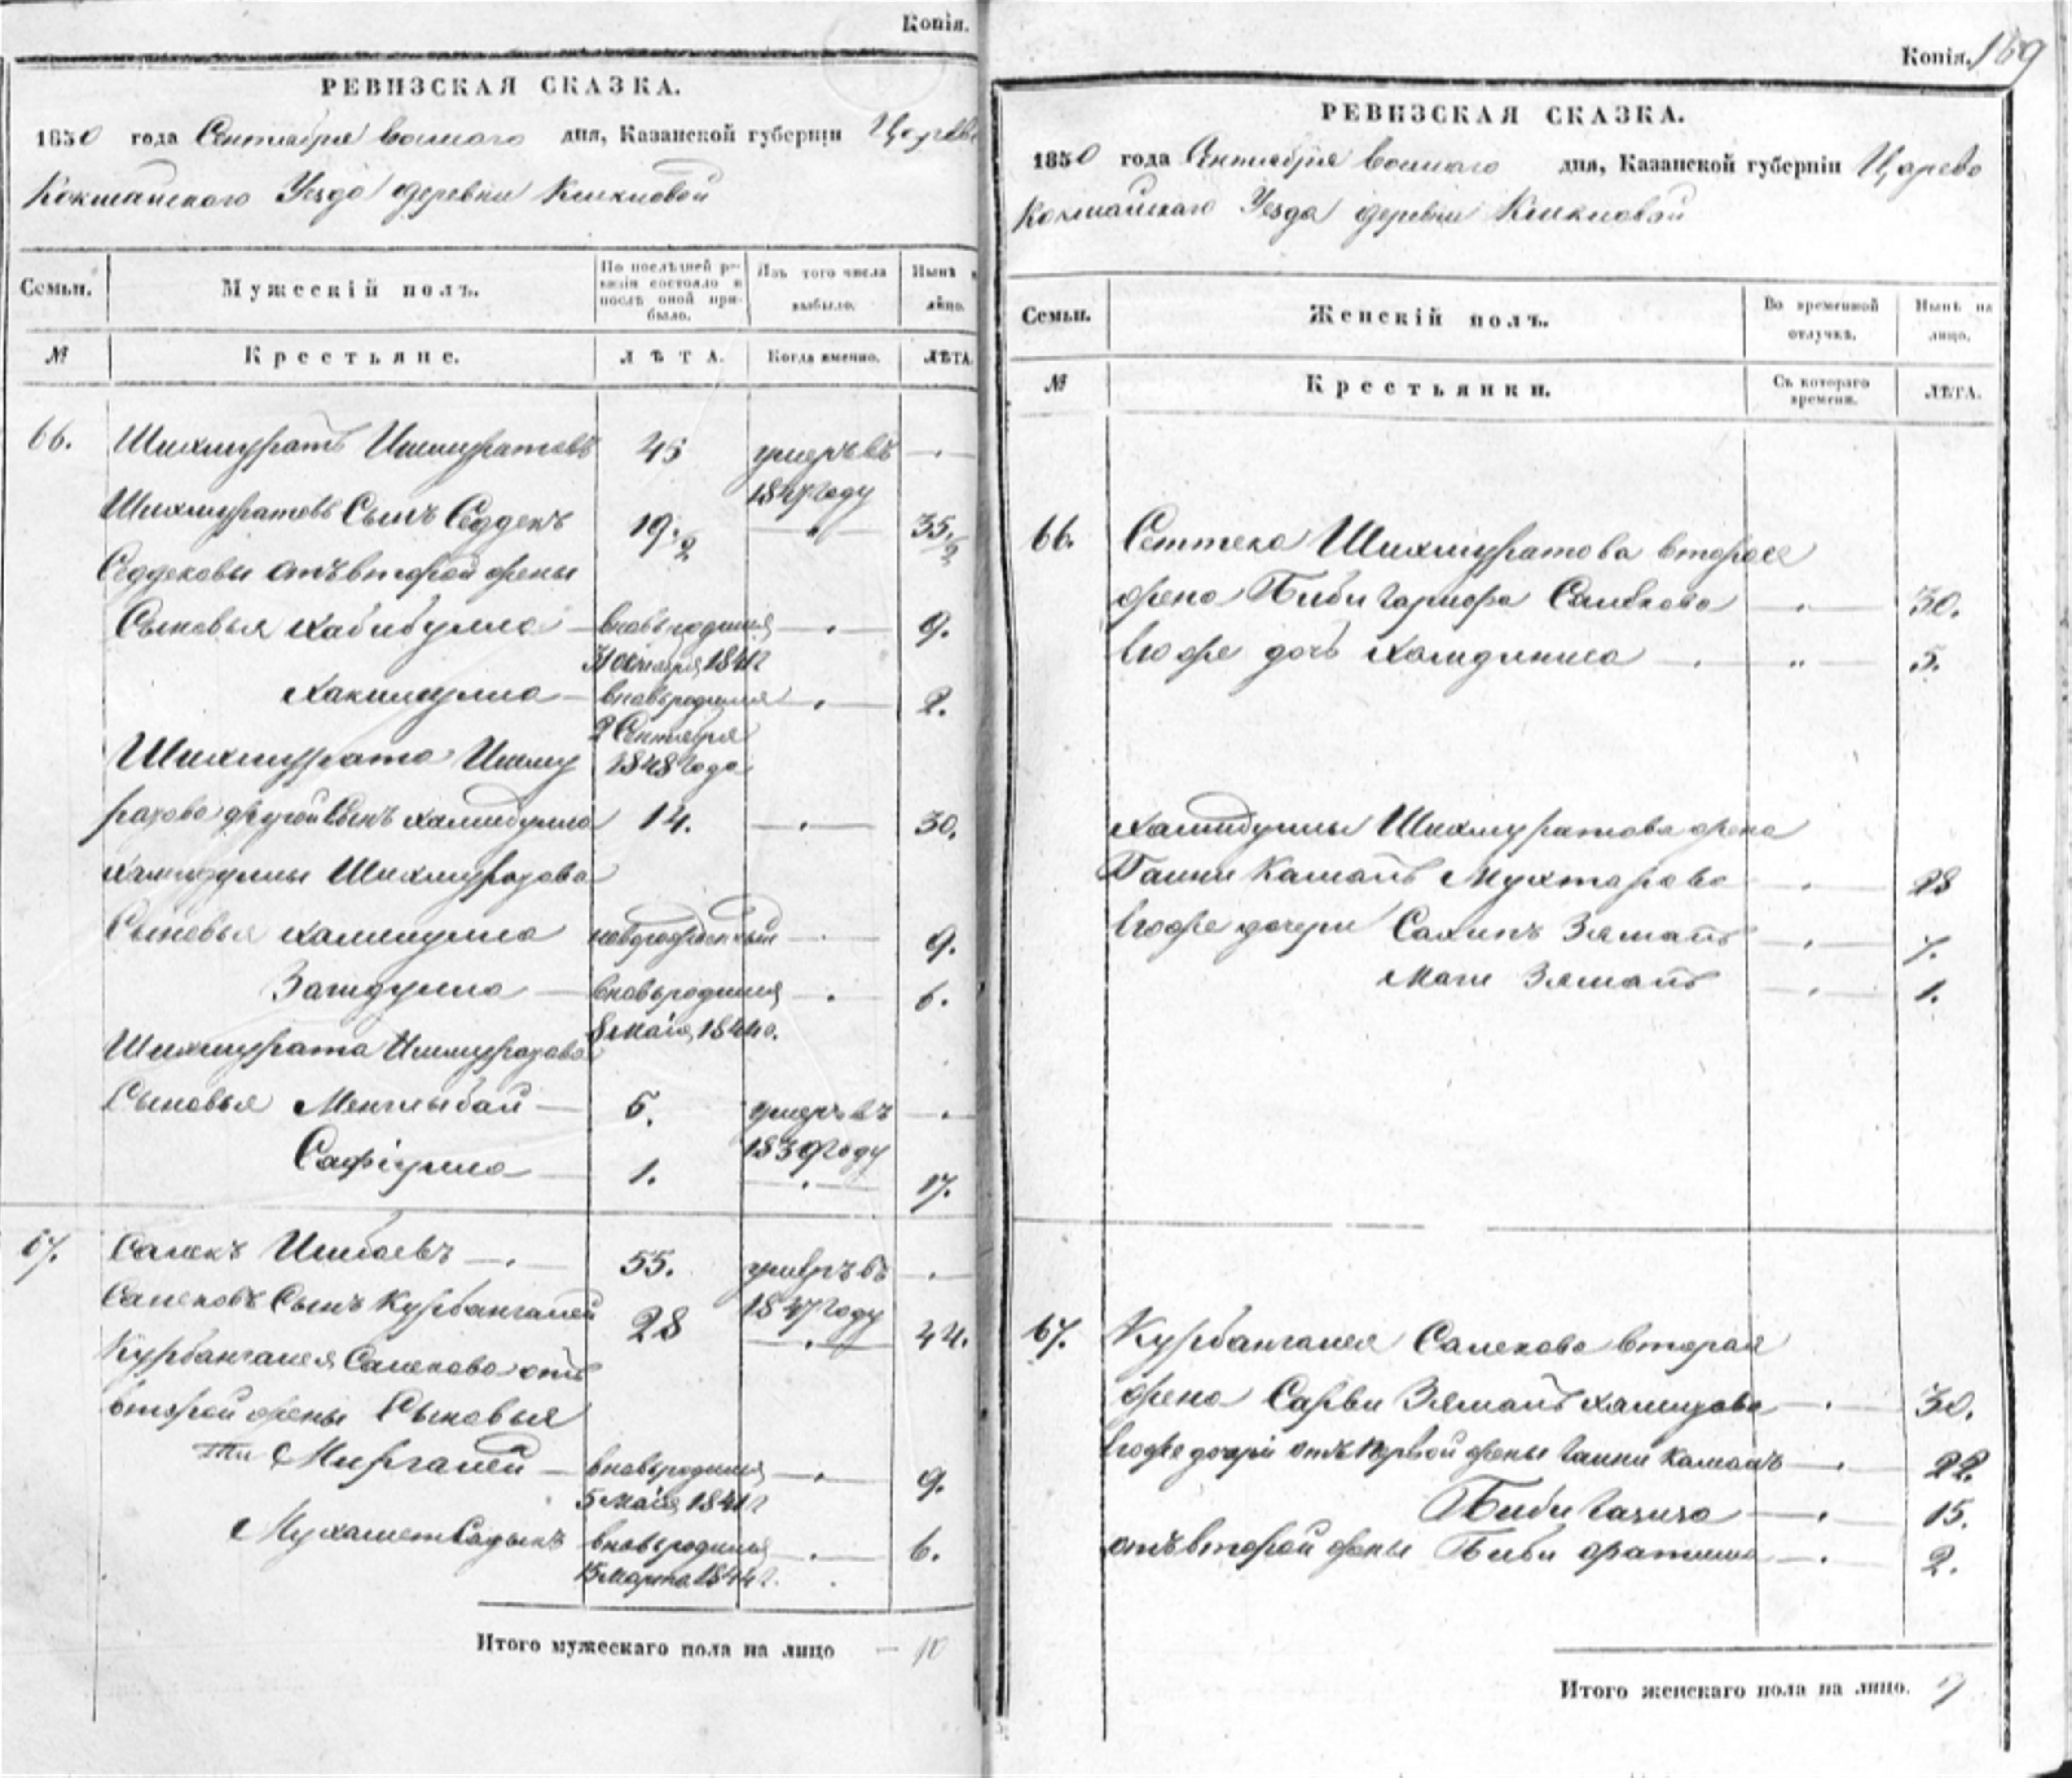 Копія.
РЕВИЗСКАЯ СКАЗКА.
1850 года Сентября восмаго дня, Казанской губерніи Царево
Кокшайскаго Уезда деревни
Семьи.
Мужескій полъ.
По послѣдней ре-
визіи состояло и
послѣ оной при-
было.
Изъ того числа
выбыло.
Нынѣ на
лицо.
№
Крестьяне.
ЛѢТА.
Когда именно.
ЛѢТА.
66. Шихмуратъ Ишмуратовъ 45 умеръ въ
1847 году
Шихмуратовъ Сынъ Седдекъ 19 1/2 35 1/2
Седдековы отъ второй жены
Сыновья Хабибулла вновь родился 9.
1841 г
Хакимулла вновь родился 2.
2 Сентября
1848 года
Шихмурата Ишму
ратова другой Сынъ Хамидулла 14. 30.
Хамидуллы Шихмуратова
Сыновья Халиулла новорожденный 9.
Загидулла вновь родился 6.
8 Мая 1844 г.
Шихмурата Ишмуратова
Сыновья Менглыбай 5. умеръ въ
1839 году
Сафіулла 1. 17.
67. Салекъ Ишбаевъ 55. умеръ въ
1847 году
Салековъ Сынъ Курбангалей 28 44.
Курбангалея Салекова отъ
второй жены Сыновья
Миргалей вновь родился 9.
5 Мая 1841 г
МухаметСадыкъ вновь родился 6.
15 Марта 1844 г.
Итого мужескаго пола на лицо 10
Копія. 169
РЕВИЗСКАЯ СКАЗКА.
1850 года Сентября восмаго дня, Казанской губерніи Царево
Кокшайскаго Уезда деревни
Семьи.
Женскій полъ.
Во временной
отлучкѣ.
Нынѣ на
лицо.
№
Крестьянки.
Съ котораго
времени.
ЛѢТА.
66. Шихмуратова вторая
жена Биби 30.
Его же дочь 5.
Хамидуллы Шихмуратова жена
Камалъ Мухтарова 28
Его же дочери Салихъ Зямалъ 7.
Маги Зямалъ 1.
67. Курбангалея Салекова вторая
жена Сарви Зямалъ Хамидова 30.
Его же дочери отъ первой жены Камалъ 22.
Биби Газиза 15.
отъ второй жены Биби Фатима 2.
Итого женскаго пола на лицо. 9